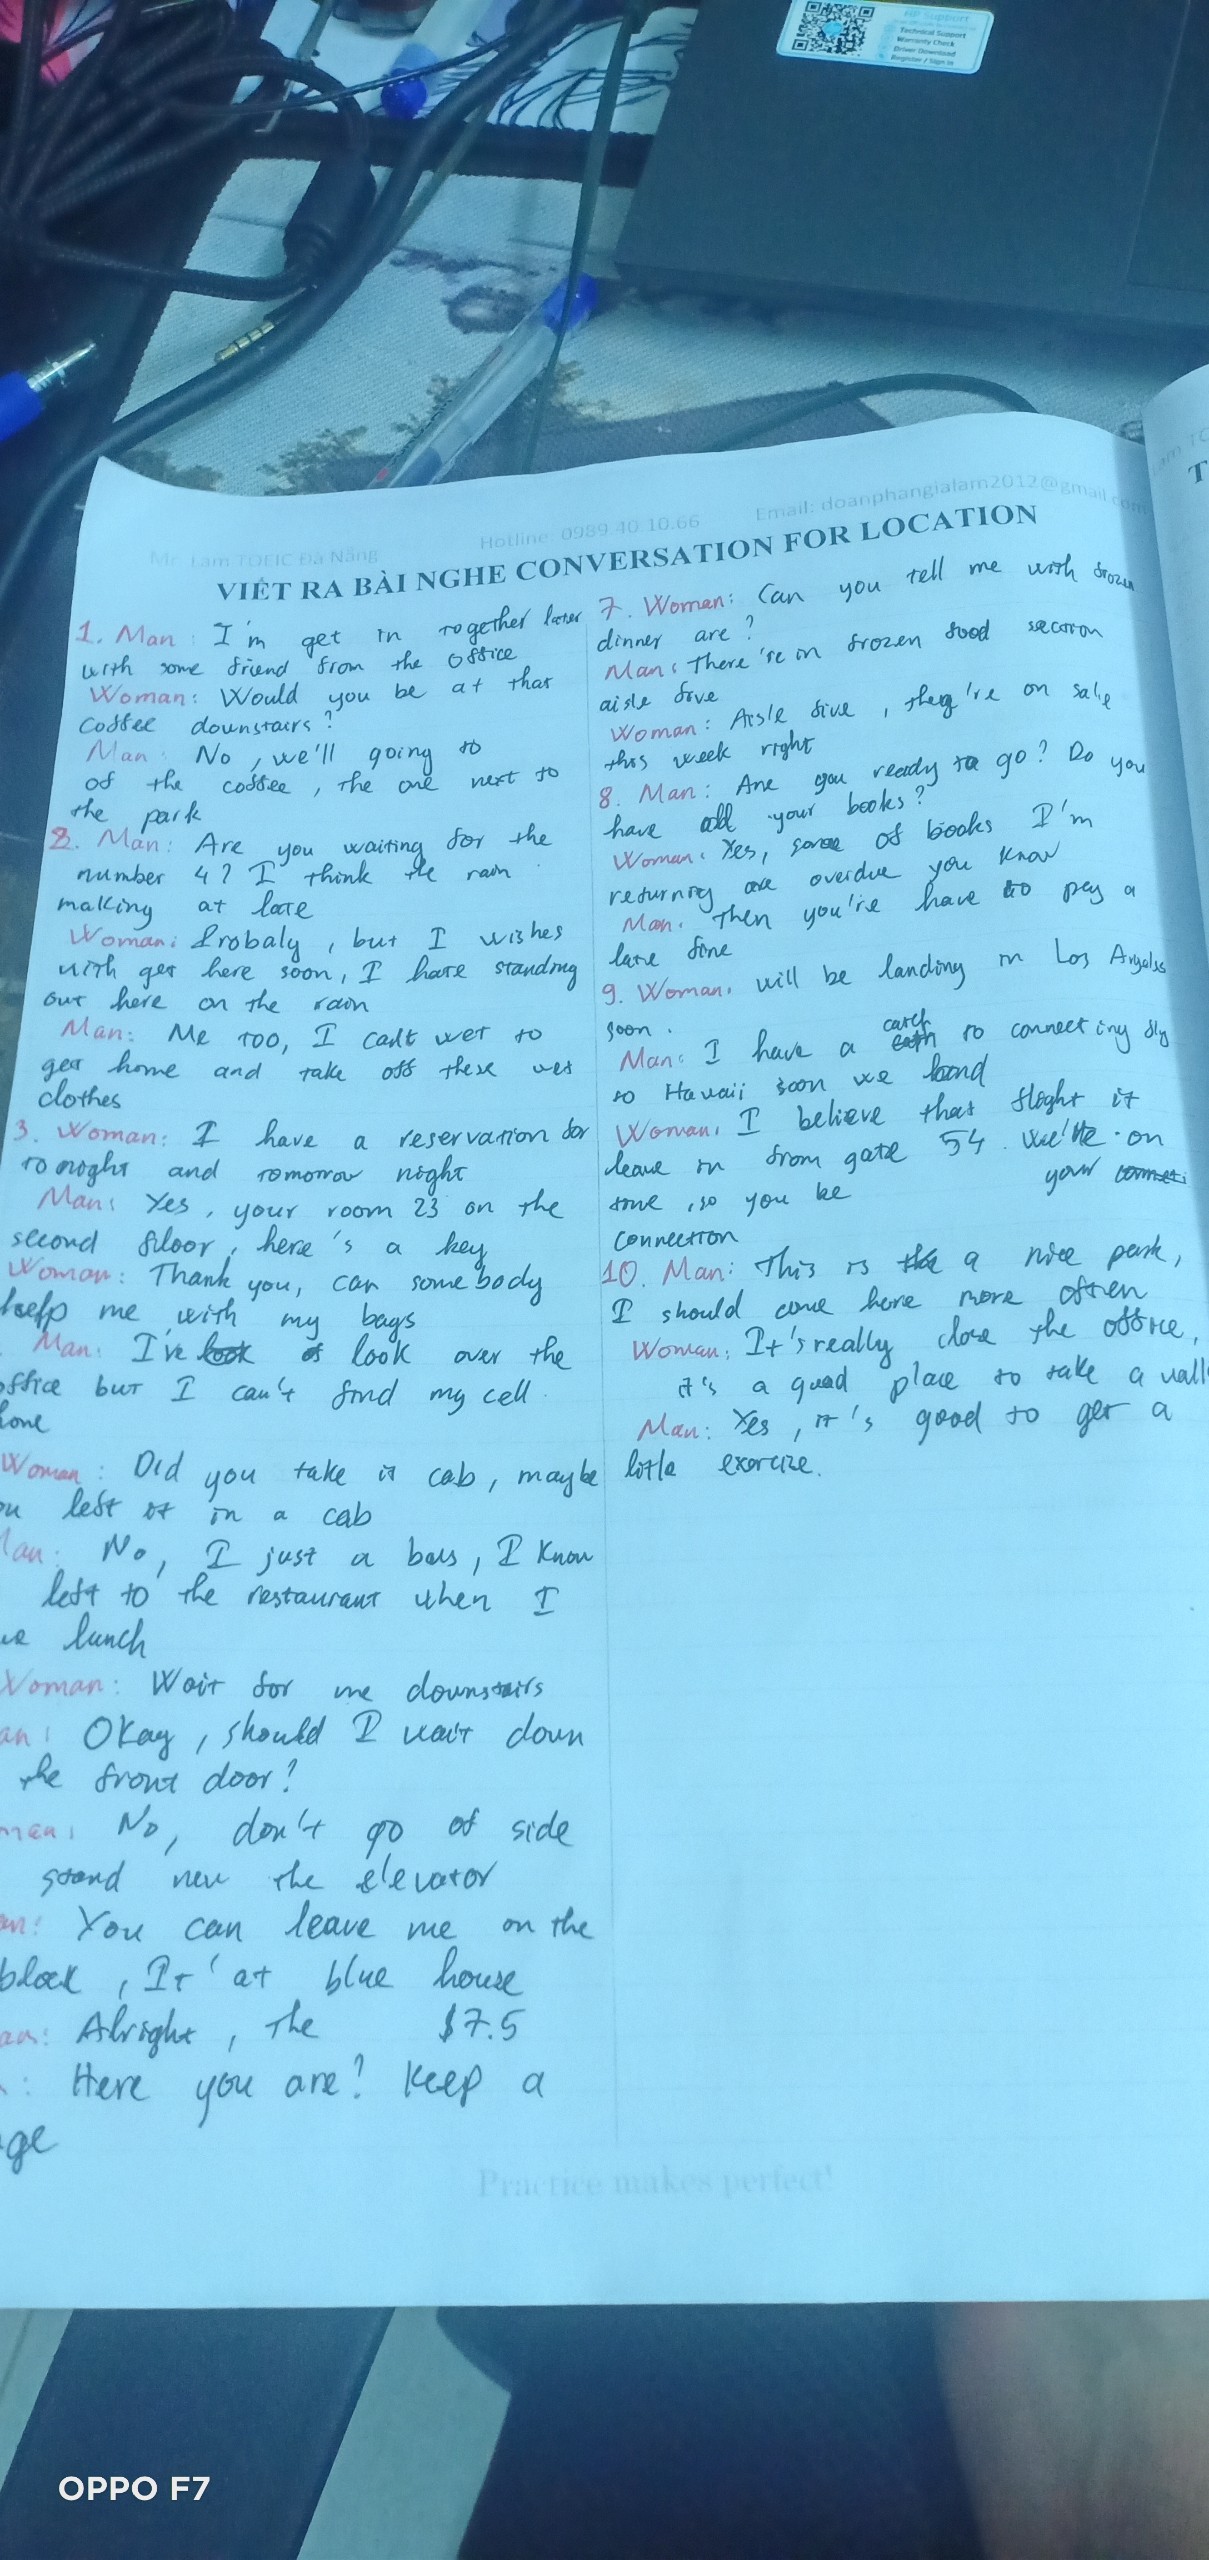 HP Support
Technical Support
Warranty Check
Driver Download
Register / Sign in
Mr. Lam TOEIC Đà Nẵng
Hotline: 0989.40.10.66
Email: doanphangialam2012@gmail.com
VIẾT RA BÀI NGHE CONVERSATION FOR LOCATION
1. Man: I'm get in together later
with some friend from the office
Woman: Would you be at that
coffee downstairs?
Man: No, we'll going to
of the coffee, the one next to
the park
2. Man: Are you waiting for the
number 4? I think the rain
making at late
Woman: Probaly, but I wishes
with get here soon, I hate standing
out here on the rain
Man: Me too, I can't wet to
get home and take off these wet
clothes
3. Woman: I have a reservation for
tonight and tomorrow night
Man: Yes, your room 23 on the
second floor, here's a key
Woman: Thank you, can somebody
help me with my bags
Man: I've look over the
office but I can't find my cell
hone
Woman: Did you take it cab, maybe
ou left it in a cab
Man: No, I just a bus, I know
left to the restaurant when I
ve lunch
Woman: Wait for me downstairs
an: Okay, should I wait down
the front door?
man: No, don't go of side
stand new the elevator
an: You can leave me on the
block, It' at blue house
an: Alright, the $7.5
: Here you are? Keep a
ge
7. Woman: Can you tell me with frozen
dinner are?
Man: There're in frozen food section
aisle five
Woman: Aisle five, they're on sale
this week right
8. Man: Are you ready to go? Do you
have all your books?
Woman: Yes, some of books I'm
returning are overdue you know
Man: Then you're have to pay a
late fine
9. Woman: will be landing in Los Angelss
soon.
Man: I have a catch to connecting fly
to Hawaii soon we land
Woman: I believe that flight it
leave in from gate 54. We're on
time, so you be your
connection
10. Man: This is a nice park,
I should come here more often
Woman: It's really close the office,
it's a good place to take a walk
Man: Yes, it's good to get a
little exercize.
Practice makes perfect!
OPPO F7